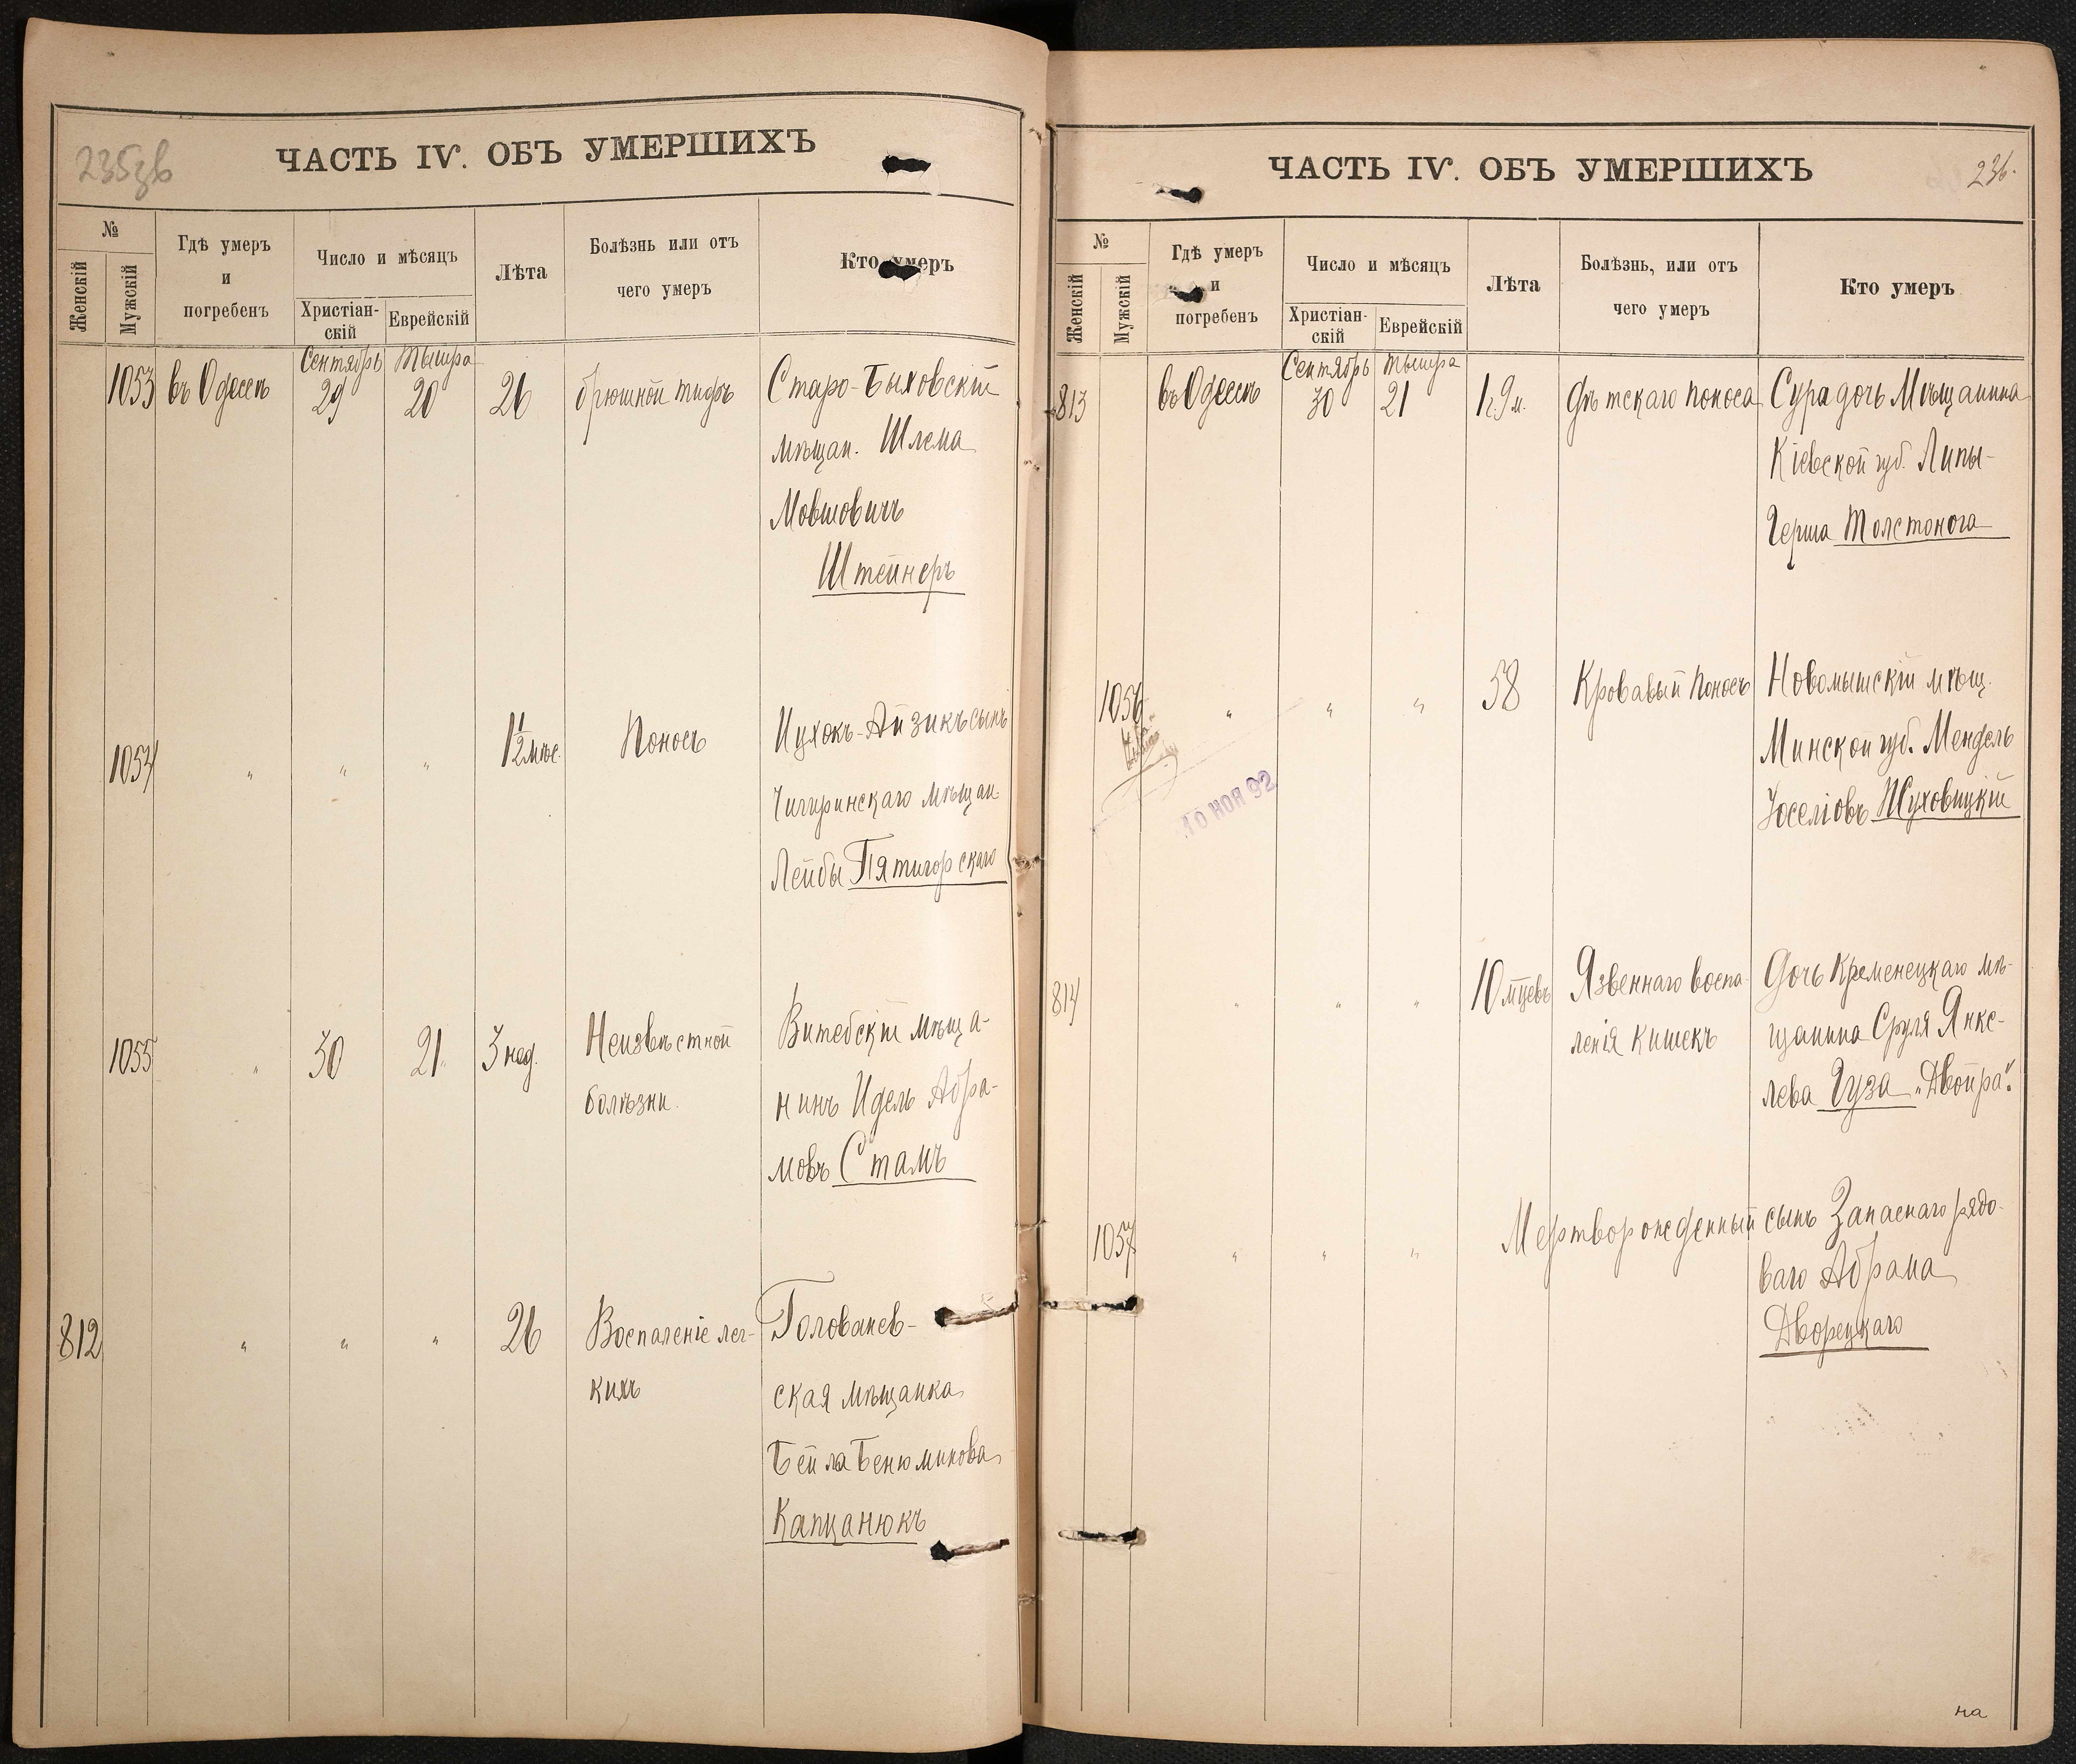 235зв
ЧАСТЬ IV. ОБЪ УМЕРШИХЪ
№
Женскій
Мужскій
Гдѣ умеръ
и
погребенъ
Число и мѣсяцъ
Христіан-
скій
Еврейскій
Лѣта
Болѣзнь или отъ
чего умеръ
Кто умеръ
Сентябрь Тышра
1053 въ Одессѣ 29 20 26 брюшной тифъ Старо-Быховскій
мѣщан. Шлема
Мовшовичъ
Штейнеръ
1054 " " " 1 1/2 мѣс. Поносъ Ицхокъ-Айзикъ сынъ
Чигиринскаго мѣщан.
Лейбы Пятигорскаго
1055 " 30 21 3 нед. Неизвѣстной Витебскій мѣща-
болѣзни нинъ Идель Абра-
мовъ Стамъ
812 " " " 26 Воспаленіе лег- Голованев-
кихъ ская мѣщанка
Бейла Бенюминова
Капцанюкъ
ЧАСТЬ IV. ОБЪ УМЕРШИХЪ
236.
№
Женскій
Мужскій
Гдѣ умеръ
и
погребенъ
Число и мѣсяцъ
Христіан-
скій
Еврейскій
Лѣта
Болѣзнь, или отъ
чего умеръ
Кто умеръ
Сентябрь Тышра
813 въ Одессѣ 30 21 1г.9м. Дѣтскаго поноса Сура дочь Мѣщанина
Кіевской губ. Липы-
Герша Толстонога
1056 " " " 58 Кровавый поносъ Новомышскій мѣщ.
Минской губ. Мендель
Іоселіовъ Жуховицкій
10 НОЯ 92
814 " " " 10 мцевъ Язвеннаго воспа- Дочь Кременецкаго мѣ-
ленія кишекъ щанина Сруля Янке-
лева Гуза „Двойра".
1057 " " " Мертворожденный сынъ Запаснаго рядо-
ваго Абрама
Дворецкаго
на